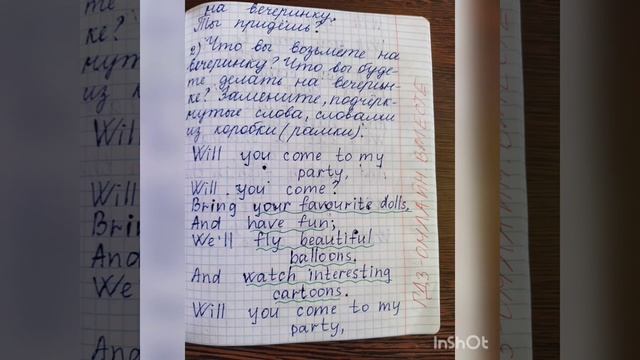 на вечеринку.
Ты придешь?
2) Что вы возьмете на
вечеринку? Что вы буде-
те делать на вечерин-
ке? Замените, подчерк-
нутые слова, словами
из коробки (рамки).
Will you come to my
party,
Will you come?
Bring your favourite dolls,
And have fun;
We'll fly beautiful
balloons.
And watch interesting
cartoons.
Will you come to my
party,
ГДЗ ОНЛАЙН ВМЕСТЕ
InShOt
те
ке?
нут
из к
Will
Will
Bring
And
We
And